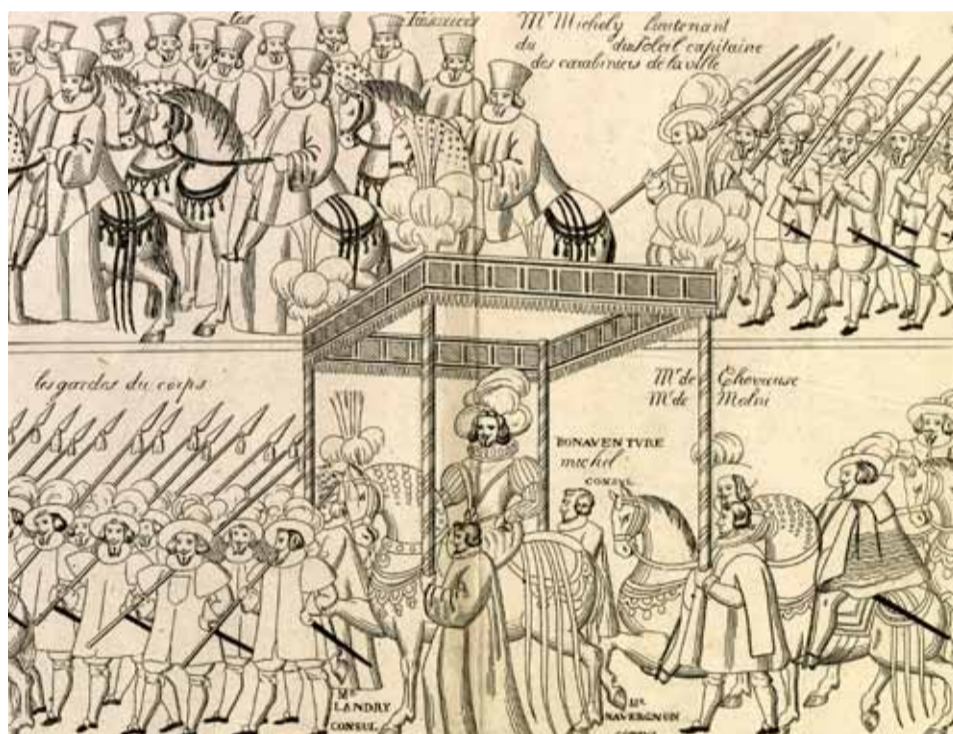 les
Mr Michely lieutenant
du du soleil capitaine
des carabiniers de la ville
les gardes du corps
Mr de Chevreuse
Mr de
BONAVENTVRE
michel
CONSVL
Mr
LANDRY
CONSUL
Mr
NAVERGNON